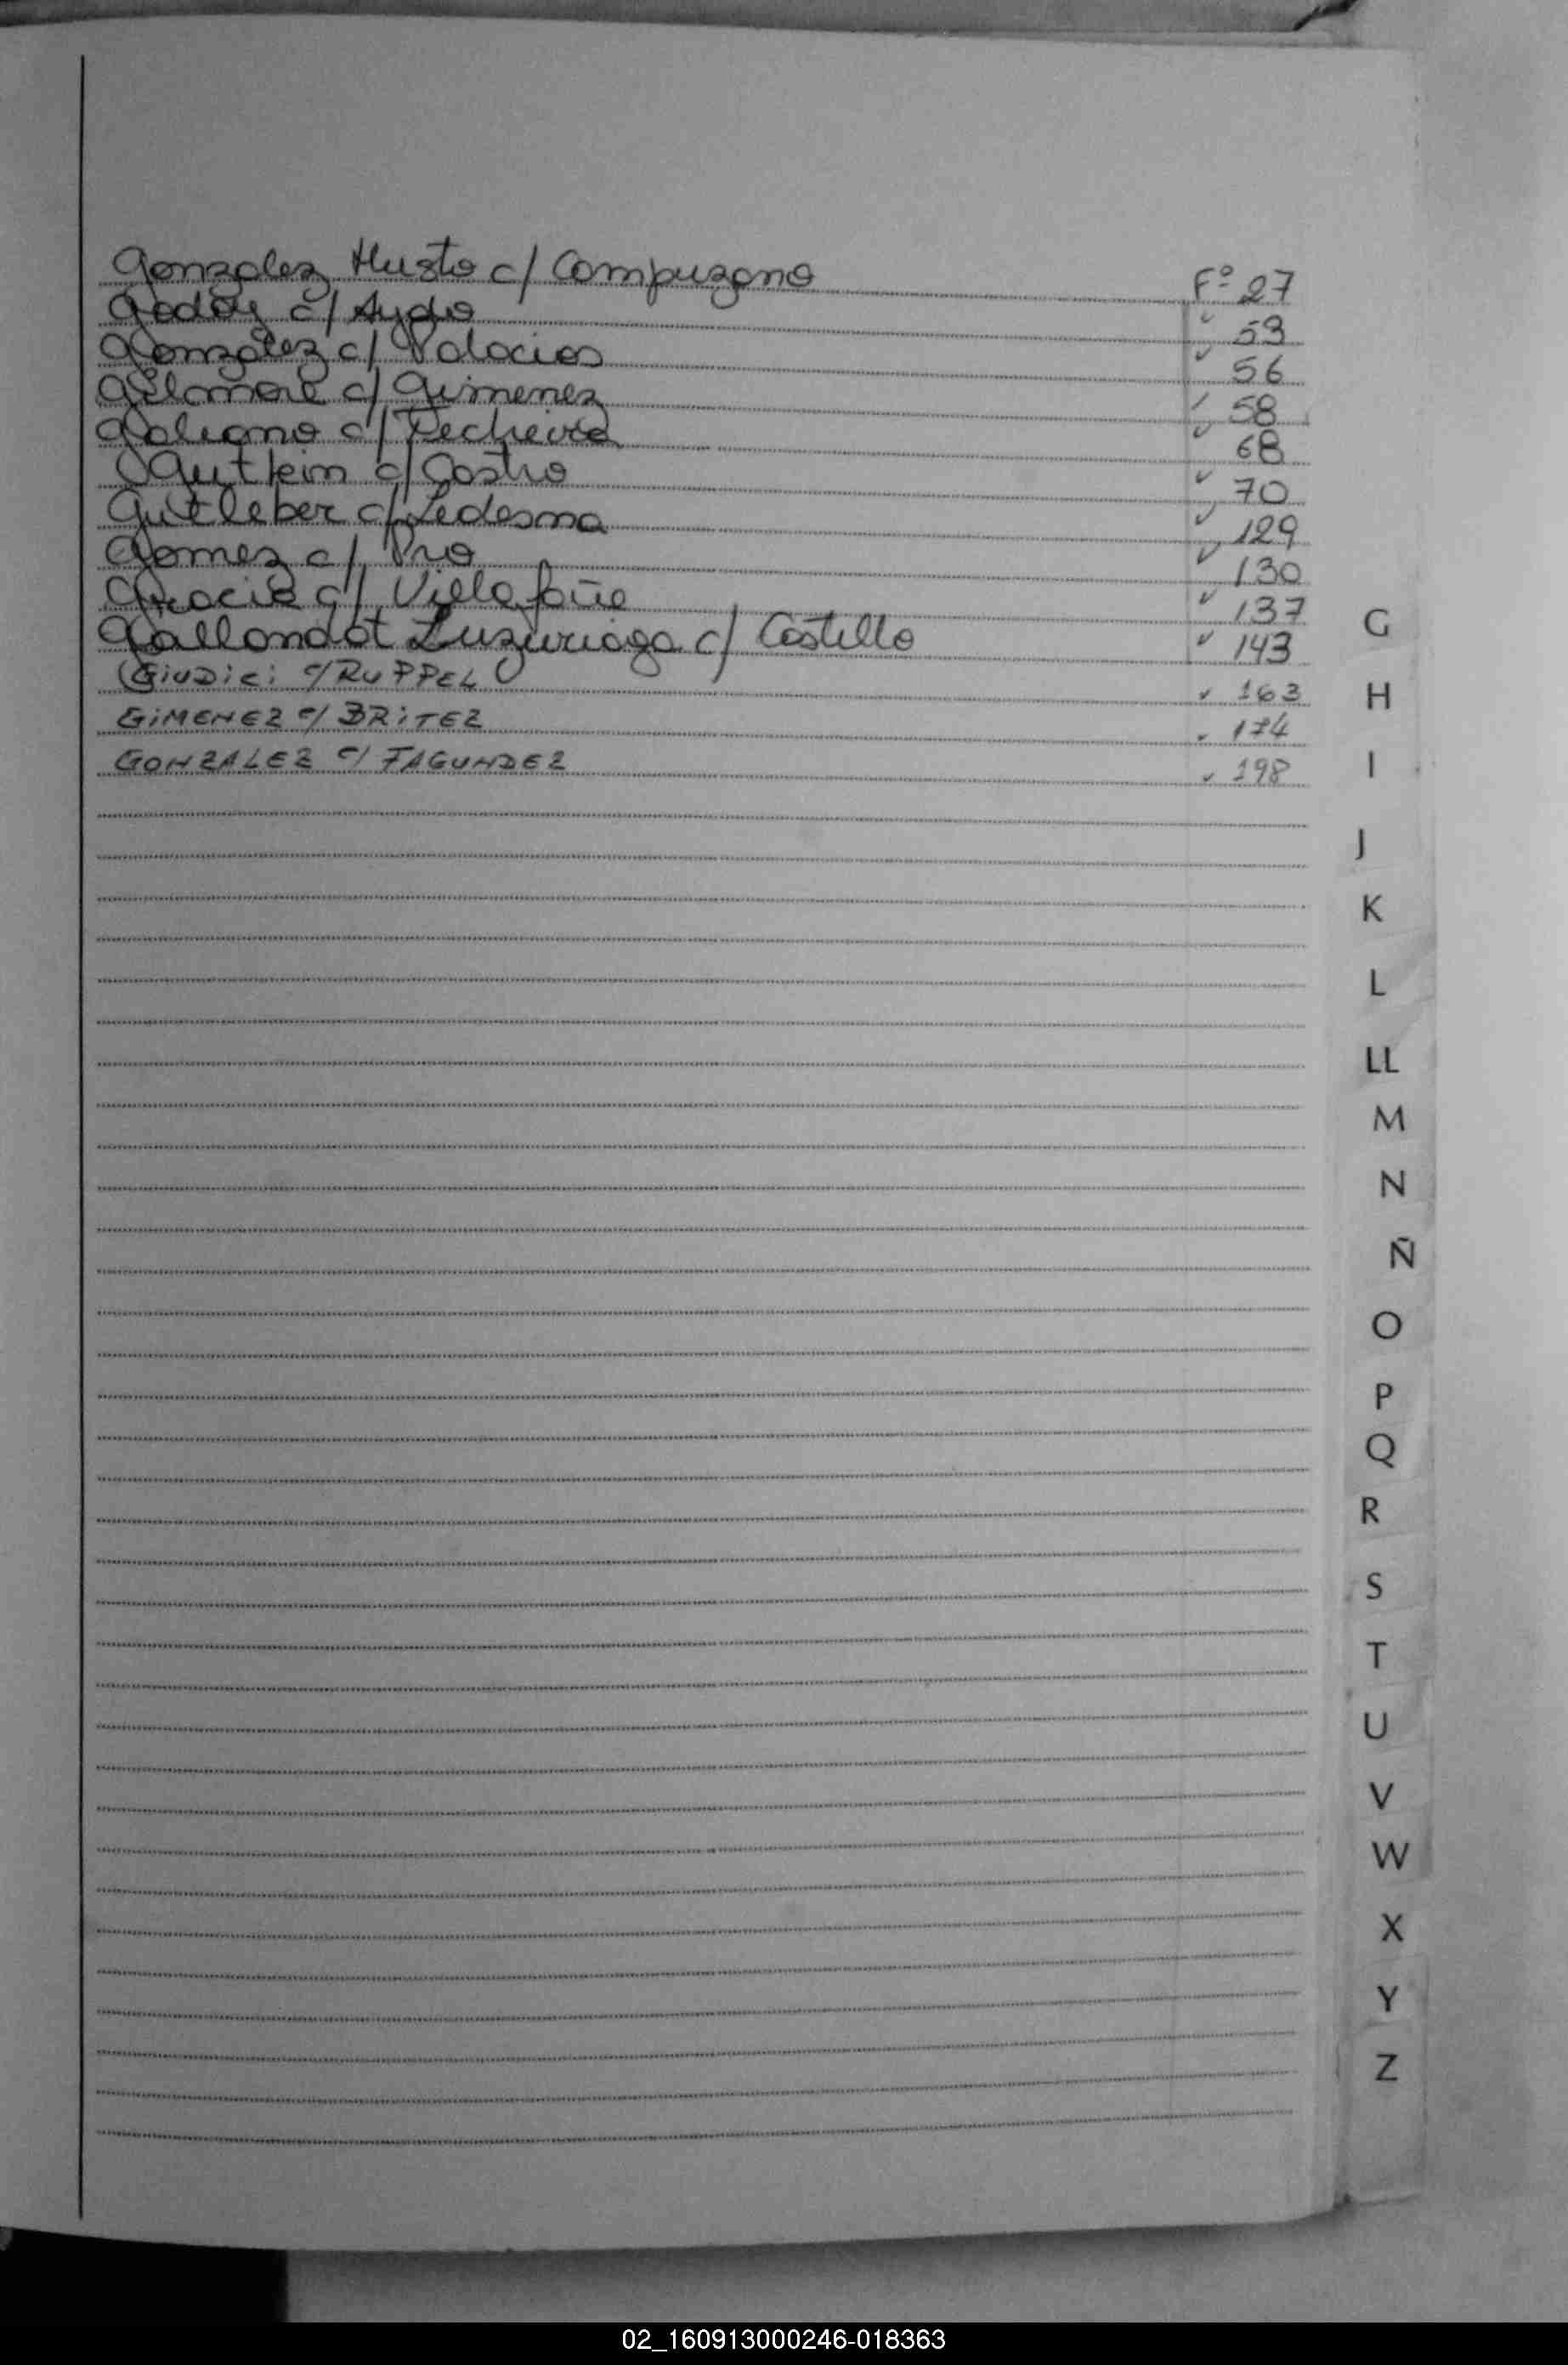 Gonzalez Husto c/ Campuzano Fº 27
Godoy c/ Ayala ✓ 53
Gonzalez c/ Palacios ✓ 56
Gilmore c/ Gimenez ✓ 58
Galeano c/ ✓ 68
c/ Castro ✓ 70
Gutleber c/ Ledesma ✓ 129
Gomez c/ Pro ✓ 130
c/ Villafañe ✓ 137
Gallondot Luzuriaga c/ Castello ✓ 143
GiUDiCi c/ RUPPEL ✓ 163
GiMENEZ c/ BRiTEZ ✓ 174
GONZALEZ c/ FAGUNDEZ ✓ 198
G
H
I
J
K
L
LL
M
N
Ñ
O
P
Q
R
S
T
U
V
W
X
Y
Z
02_160913000246-018363